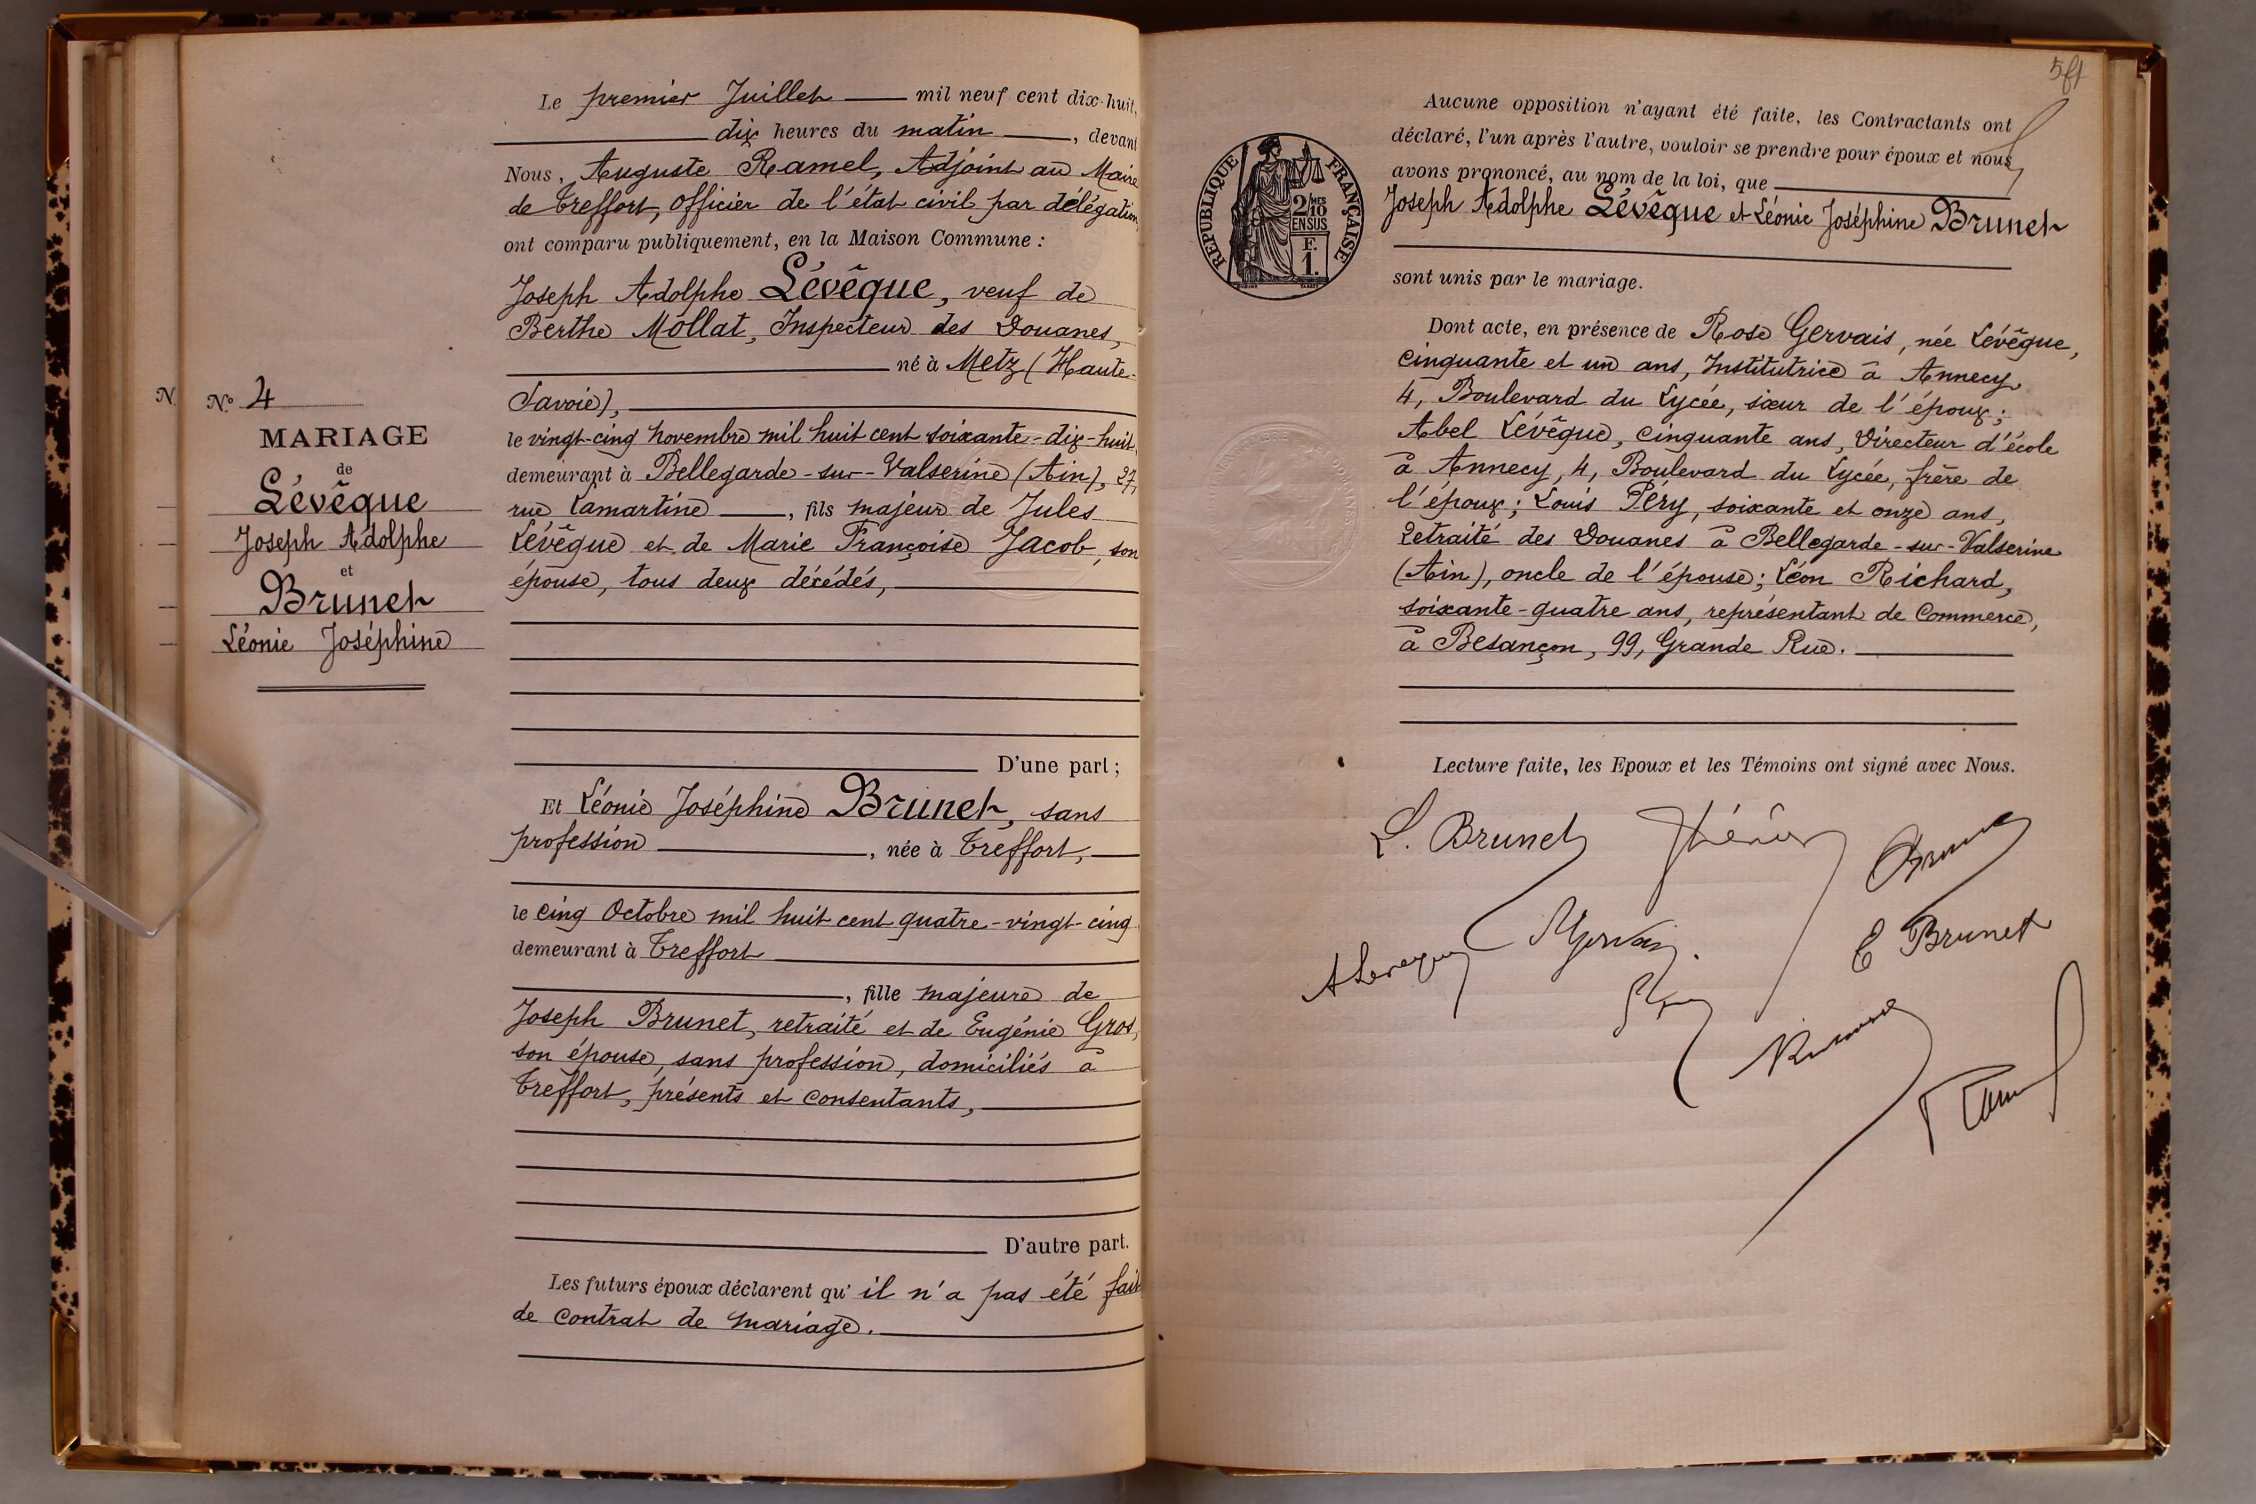 Le premier Juillet mil neuf cent dix-huit,
dix heures du matin, devant
Nous, Auguste Ramel, Adjoint au Maire
de Treffort, officier de l'état civil par délégation,
ont comparu publiquement, en la Maison Commune :
Joseph Adolphe Lévêque, veuf de
Berthe Mollat, Inspecteur des Douanes,
né à Metz (Haute-
Savoie),
le vingt-cinq novembre mil huit cent soixante-dix-huit,
demeurant à Bellegarde-sur-Valserine (Ain), 27,
rue Lamartine, fils majeur de Jules
Lévêque et de Marie Françoise Jacob, son
épouse, tous deux décédés,
D'une part ;
Et Léonie Joséphine Brunet, sans
profession, née à Treffort,
le cinq Octobre mil huit cent quatre-vingt-cinq
demeurant à Treffort
, fille majeure de
Joseph Brunet, retraité et de Eugénie Gros,
son épouse, sans profession, domiciliés à
Treffort, présents et consentants,
D'autre part.
Les futurs époux déclarent qu'il n'a pas été fait
de contrat de mariage.
N
N° 4
MARIAGE
de
Lévêque
Joseph Adolphe
et
Brunet
Léonie Joséphine
Aucune opposition n'ayant été faite, les Contractants ont
déclaré, l'un après l'autre, vouloir se prendre pour époux et nous
avons prononcé, au nom de la loi, que
Joseph Adolphe Lévêque et Léonie Joséphine Brunet
sont unis par le mariage.
Dont acte, en présence de Rose Gervais, née Lévêque,
cinquante et un ans, Institutrice à Annecy
4, Boulevard du Lycée, sœur de l'époux ;
Abel Lévêque, cinquante ans, Directeur d'école
à Annecy, 4, Boulevard du Lycée, frère de
l'époux ; Louis Péry, soixante et onze ans,
Retraité des Douanes à Bellegarde-sur-Valserine
(Ain), oncle de l'épouse ; Léon Richard,
soixante-quatre ans, représentant de Commerce,
à Besançon, 99, Grande Rue.
Lecture faite, les Epoux et les Témoins ont signé avec Nous.
L. Brunet
A Leveque
E Brunet
RÉPUBLIQUE FRANÇAISE
2/10
EN SUS
F.
1.